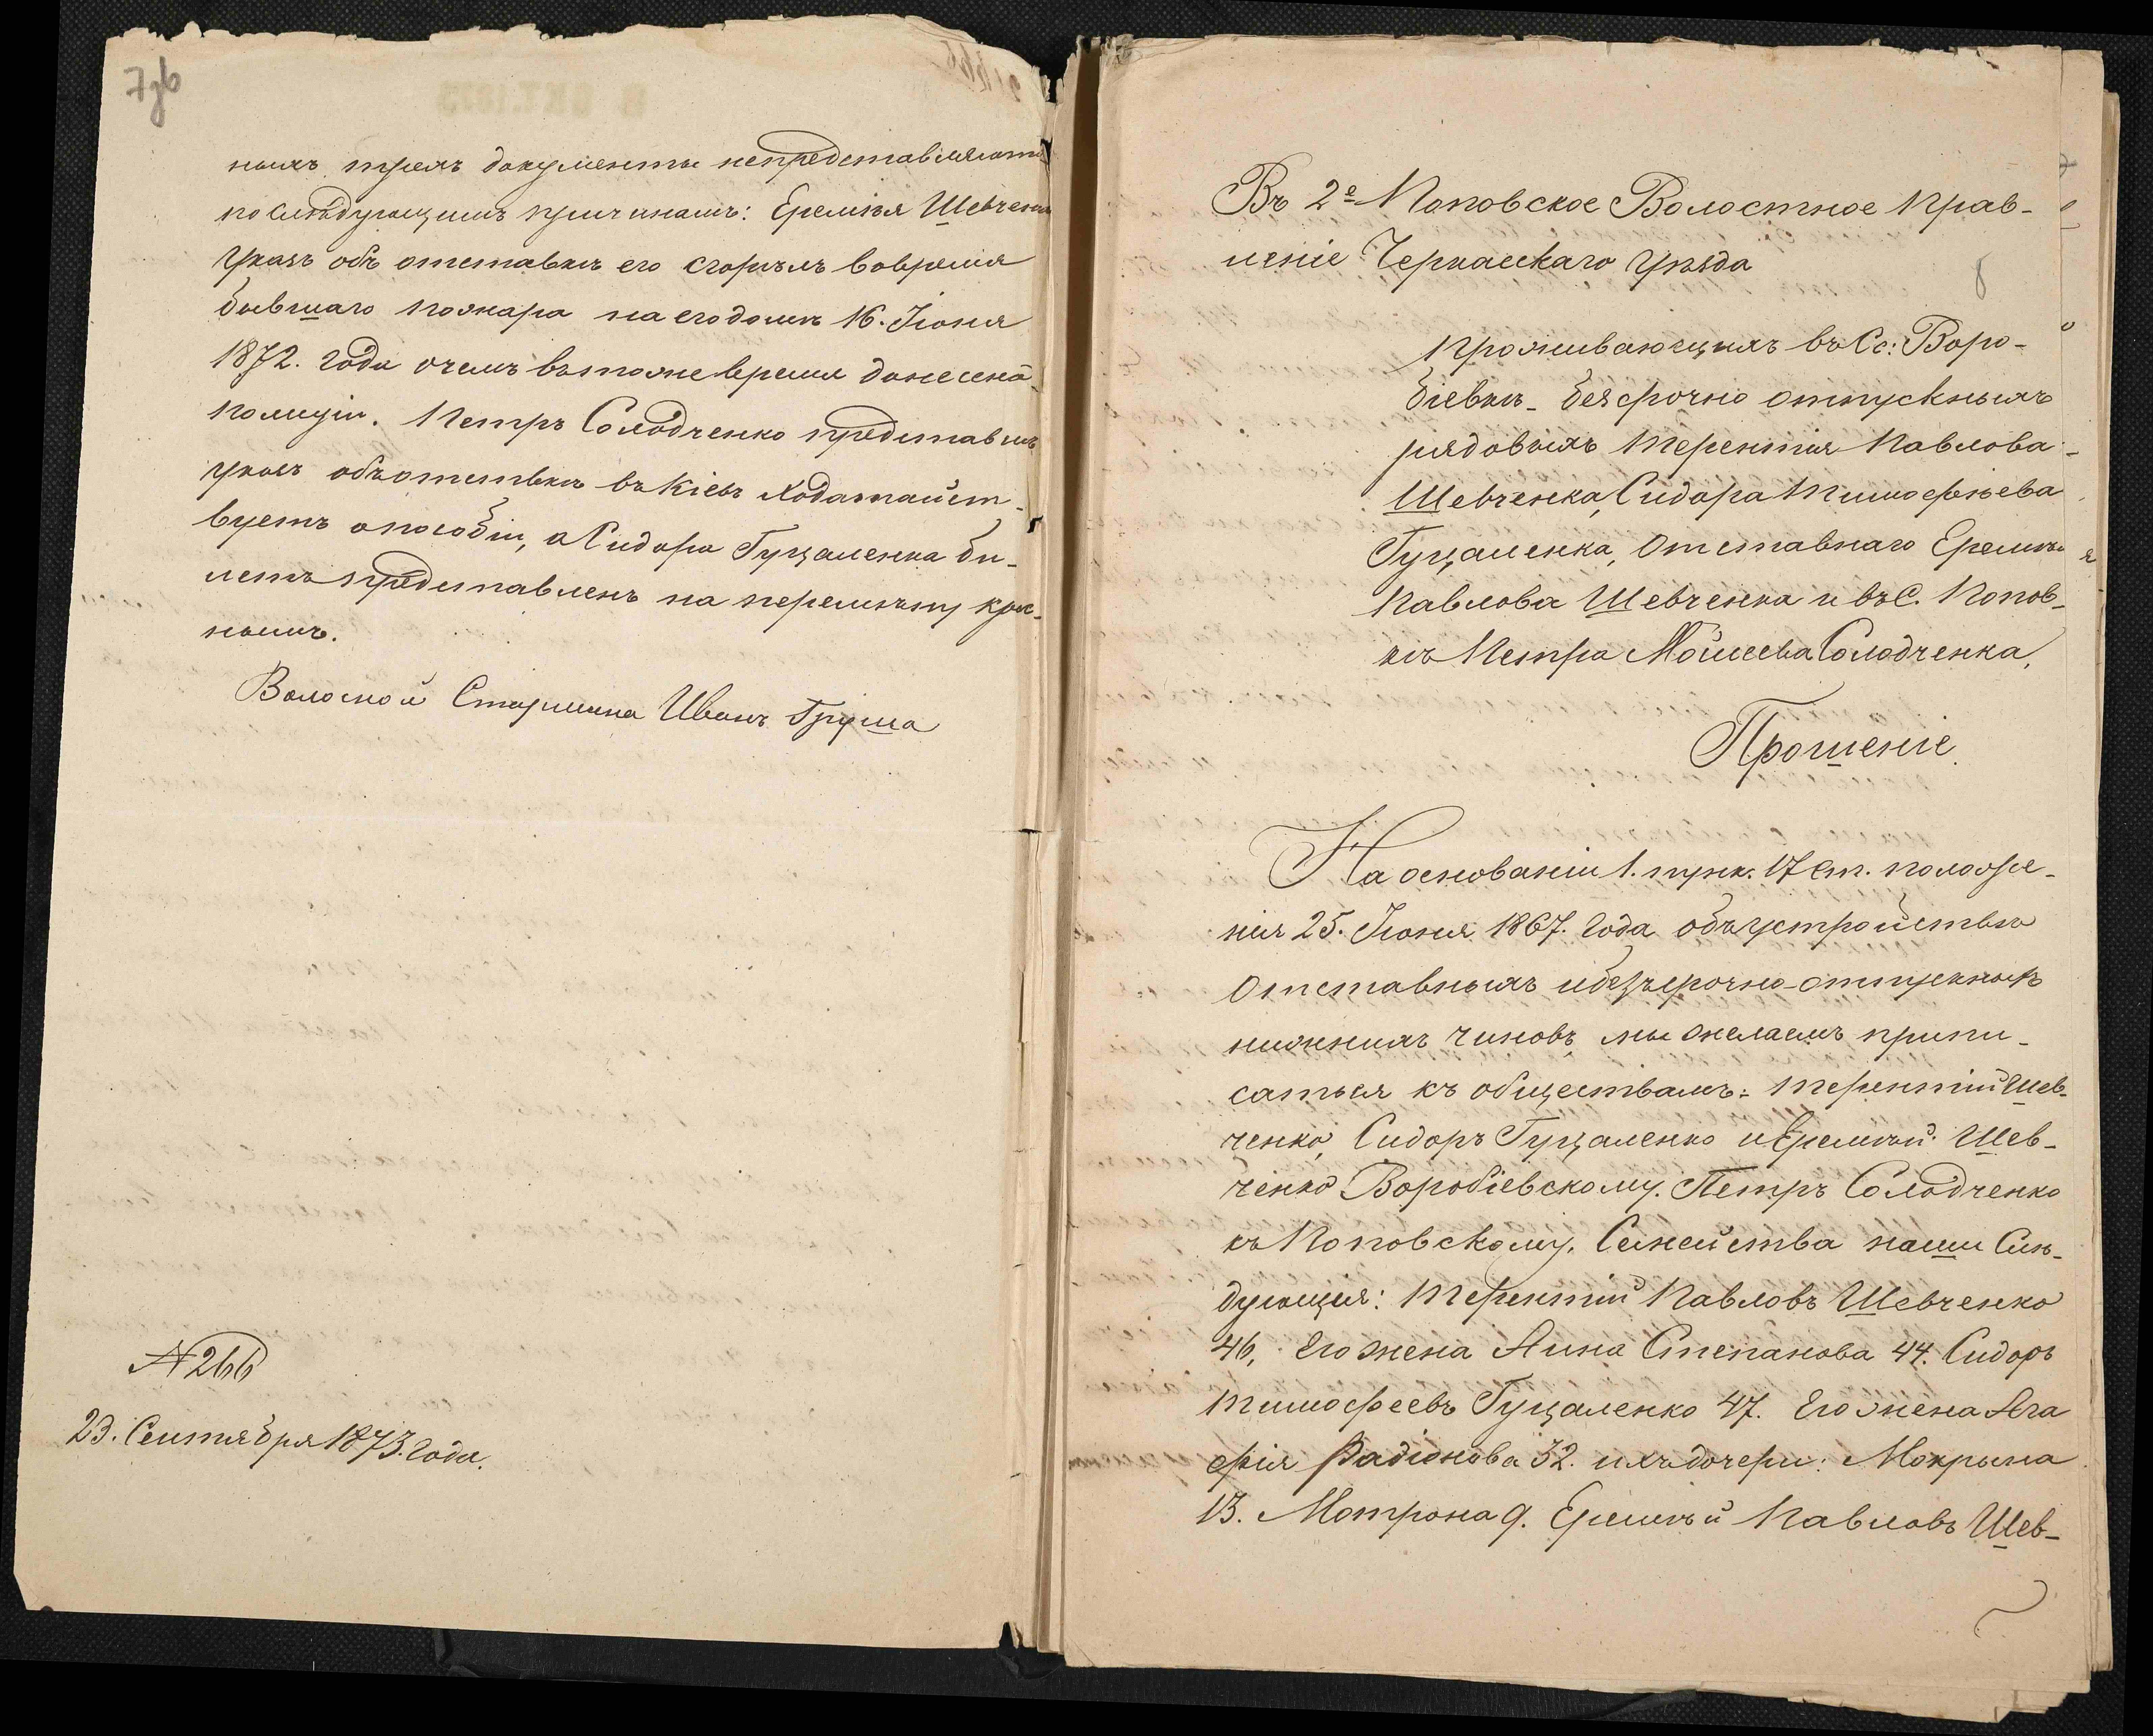 7зв
ныхъ трехъ документы непредставляютъ
по слѣдующимъ причинамъ: Еремѣя Шевченка
Указъ объ отставкѣ его сгорѣлъ вовремя
бывшаго пожара на его домѣ 16. Іюня
1872. года очемъ въ тоже время донесено
полиціи. Петръ Солодченко представилъ
указъ объ отставкѣ въ Кіевъ ходатайст-
вуетъ опособіи, а Сидора Гуцаленка би-
летъ представленъ на перемѣну
Волосной Старшина Иванъ Груша
№ 266
23. Сентября 1873. года.
8
Въ 2е Поповское Волостное Прав-
леніе Черкаскаго уѣзда
Проживающихъ въ Сс: Воро-
біевкѣ- безсрочно отпускныхъ
рядовыхъ Терентія Павлова-
Шевченка, Сидора Тимофѣева
Гуцаленка, Отставнаго Еремѣя
Павлова Шевченка и въ С. Попов-
кѣ Петра Мойсеева Солодченка,
Прошеніе.
На основаніи 1. пунк. 17 ст. положе-
нія 25. Іюня 1867. года объ устройствѣ
Отставныхъ и безъсрочно-отпускныхъ
нижнихъ чиновъ, мы желаемъ припи-
саться къ обществамъ: Терентій Шев-
ченко, Сидоръ Гуцаленко и Еремѣй Шев-
ченко Воробіевскому. Петръ Солодченко
къ Поповскому. Семейства наши Слѣ-
дующия: Терентій Павловъ Шевченко
46, Его жена Анна Степанова 44. Сидоръ
Тимофеевъ Гуцаленко 47. Его жена Ага
фія Радіонова 32. ихъ дочери: Мокрына
13. Мотрона 9. Еремѣй Павловъ Шев-